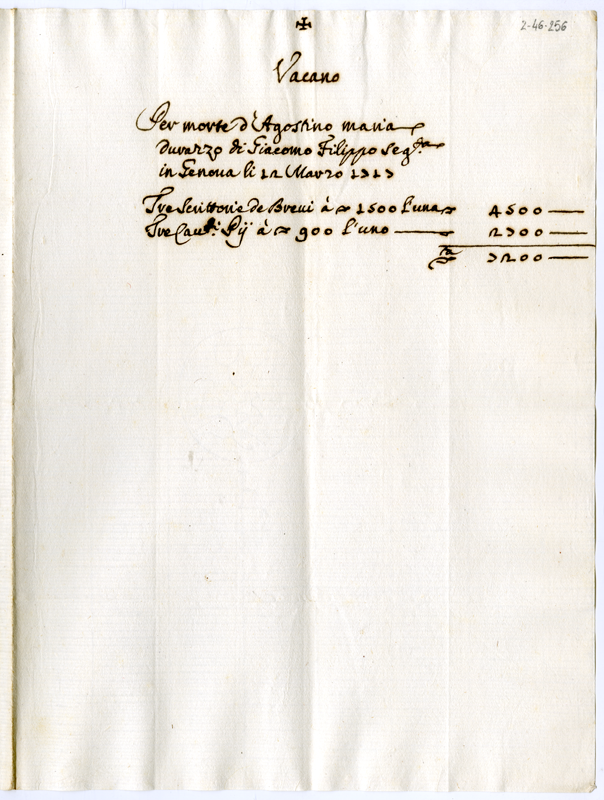 ✠
2-46-256
Vacano
Per morte d'Agostino maria
Durazzo di Giacomo Filippo Seg.ta
in Genova li 12 Marzo 1717
Tre Scrittorie de Breui à 1500 l'una 4500
Tre Pij à 900 l'uno 2700
7200